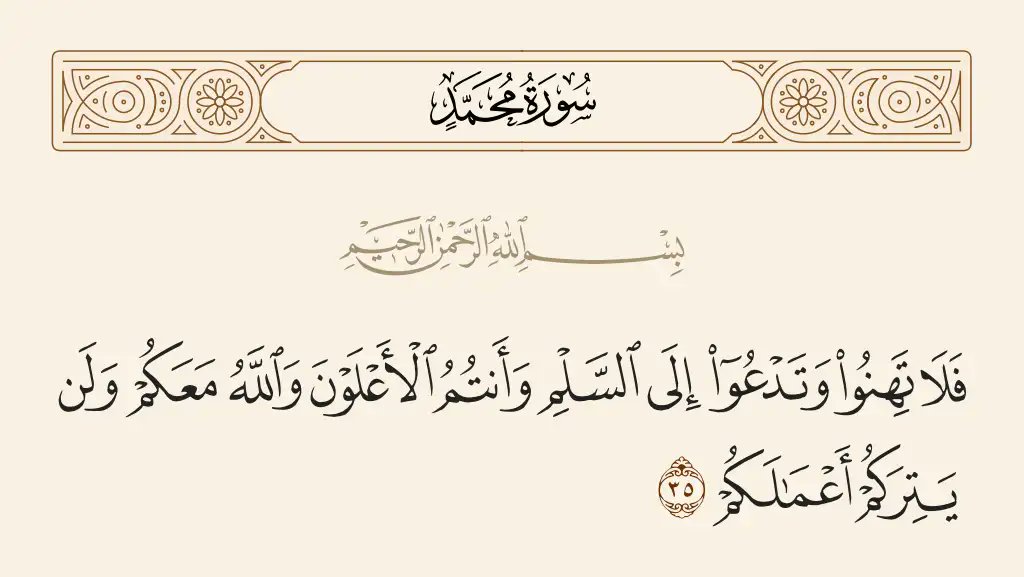 سُورَةُ مُحَمَّدٍ
بِسْمِ ٱللَّهِ ٱلرَّحْمَٰنِ ٱلرَّحِيمِ
فَلَا تَهِنُوا۟ وَتَدْعُوٓا۟ إِلَى ٱلسَّلْمِ وَأَنتُمُ ٱلْأَعْلَوْنَ وَٱللَّهُ مَعَكُمْ وَلَن
يَتِرَكُمْ أَعْمَـٰلَكُمْ ٣٥